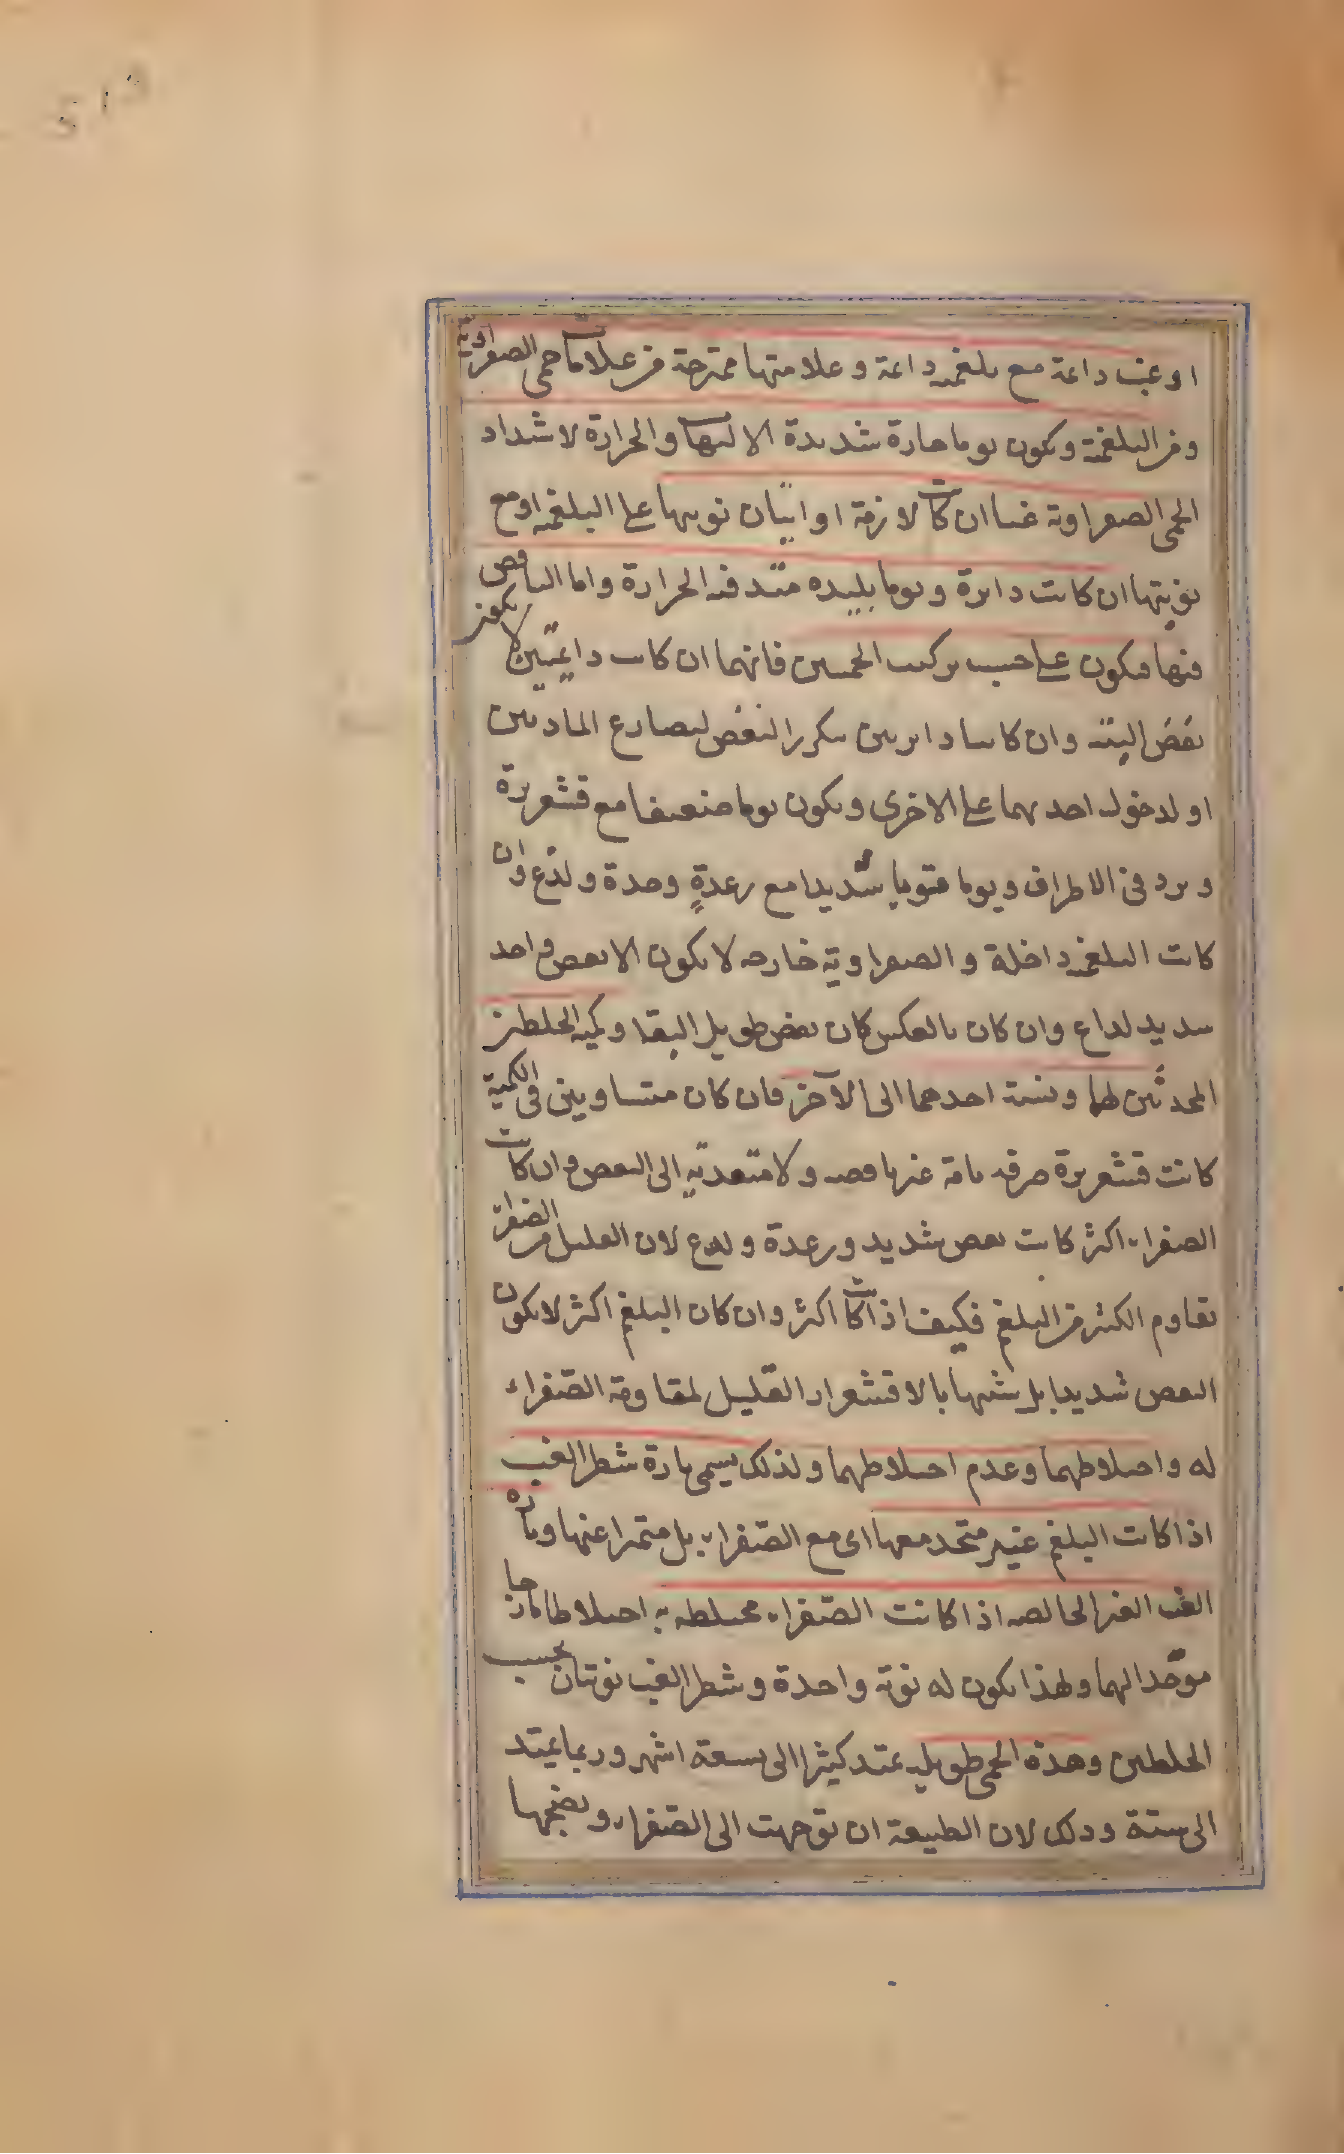 او غب دائمة مع بلغمية دائمة وعلامتها ممتزجة من علامات حمى الصفراوية
ومن البلغمية ويكون يوما حارة شديدة الالتهاب والحرارة لاشتداد
الحمى الصفراوية غبا ان كانت لازمة او اتيان نوبتها على البلغمية او مع
نوبتها ان كانت دائرة ويوما بليده فيه الحرارة واما النافض
فيها فيكون على حسب تركيب الحميين فانهما ان كانت دائمتين لا يكون
نفض البتة وان كانتا دائرتين يتكرر النفض لتصارع المادتين
او لدخول احديهما على الاخرى ويكون يوما ضعيفا مع قشعريرة
وبرد في الاطراف ويوما قويا شديدا مع رعدة وحدة ولذع وان
كانت البلغمية داخلة والصفراوية خارجه لا يكون الا نفض واحد
شديد لداع وان كان بالعكس كان نفض طويل البقاء وكمية الخلطين
المحدثين لهما ونسبة احدهما الى الآخر فان كان متساويين في الكمية
كانت قشعريرة صرفه ولا متعدية الى النفض وان كانت
الصفراء اكثر كانت نفض شديد ورعدة ولدع لان القليل من الصفراء
يقاوم الكثير من البلغم فكيف اذا كانت اكثر وان كان البلغم اكثر لا يكون
النفض شديدا بل شبيها بالاقشعرار القليل لمقاومة الصفراء
له واختلاطهما وعدم اختلاطهما ولذلك يسمى تارة شطر الغب
اذا كانت البلغم غير متحد معها اى مع الصفراء بل متميزا عنها وتارة
الغب الغير الخالصه اذا كانت الصفراء مختلطه به اختلاطا مازجا
موحدا لهما ولهذا يكون له نوبة واحدة وشطر الغب نوبتان بحسب
الخلطين وهذه الحمى طويلة يمتد كثيرا الى تسعة اشهر وربما يمتد
الى ستة وذلك لان الطبيعة ان توجهت الى الصفراء ونضجها